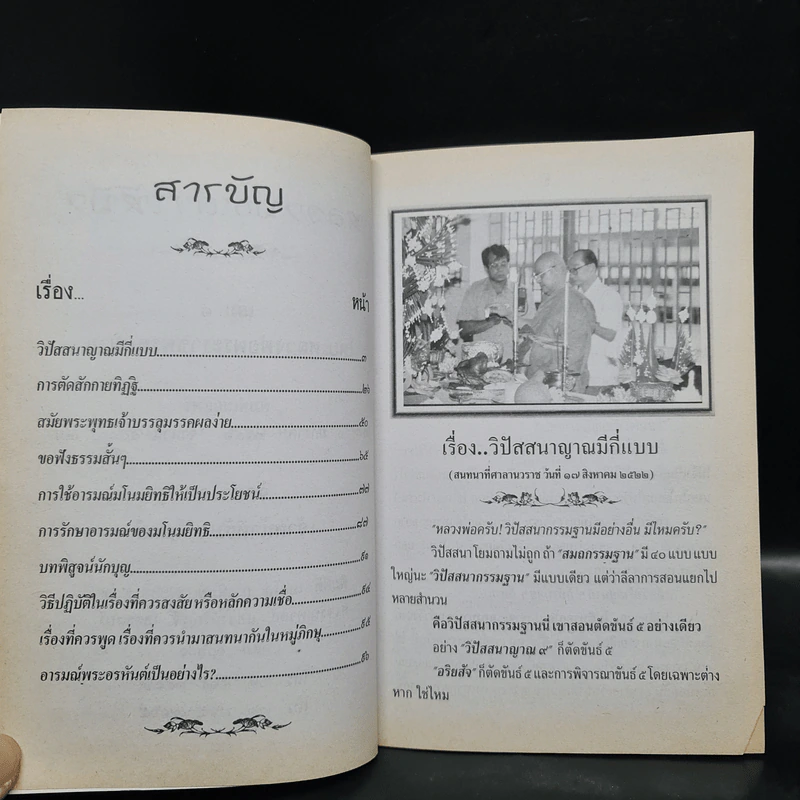 สารบัญ
เรื่อง...
หน้า
วิปัสสนาญาณมีกี่แบบ...๓
การตัดสักกายทิฏฐิ...๒๖
สมัยพระพุทธเจ้าบรรลุมรรคผลง่าย...๕๐
ขอฟังธรรมสั้นๆ...๖๕
การใช้อารมณ์มโนมยิทธิให้เป็นประโยชน์...๗๗
การรักษาอารมณ์ของมโนมยิทธิ...๘๗
บทพิสูจน์นักบุญ...๙๑
วิธีปฏิบัติในเรื่องที่ควรสงสัย หรือหลักความเชื่อ...๙๔
เรื่องที่ควรพูด เรื่องที่ควรนำมาสนทนากันในหมู่ภิกษุ...๙๕
อารมณ์พระอรหันต์เป็นอย่างไร?...๙๖
เรื่อง..วิปัสสนาญาณมีกี่แบบ
(สนทนาที่ศาลานวราช วันที่ ๑๗ สิงหาคม ๒๕๒๒)
"หลวงพ่อครับ! วิปัสสนากรรมฐานมีอย่างอื่น มีไหมครับ?"
วิปัสสนาโยมถามไม่ถูก ถ้า "สมถกรรมฐาน" มี ๔๐ แบบ แบบ
ใหญ่นะ "วิปัสสนากรรมฐาน" มีแบบเดียว แต่ว่าลีลาการสอนแยกไป
หลายสำนวน
คือวิปัสสนากรรมฐานนี่ เขาสอนตัดขันธ์ ๕ อย่างเดียว
อย่าง "วิปัสสนาญาณ ๙" ก็ตัดขันธ์ ๕
"อริยสัจ" ก็ตัดขันธ์ ๕ และการพิจารณาขันธ์ ๕ โดยเฉพาะต่าง
หาก ใช่ไหม